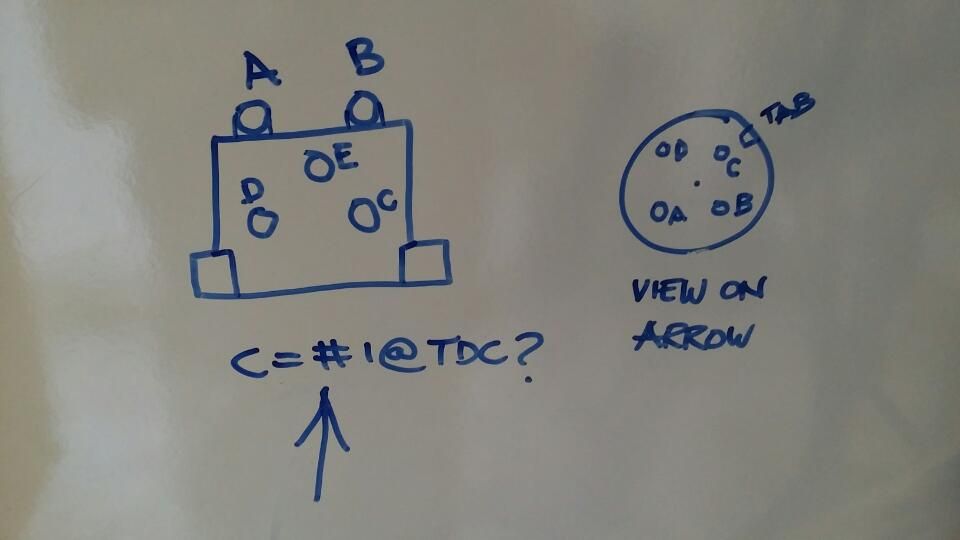 A B
E
D C
C = #1 @ TDC?
TAB
D C
A B
VIEW ON
ARROW